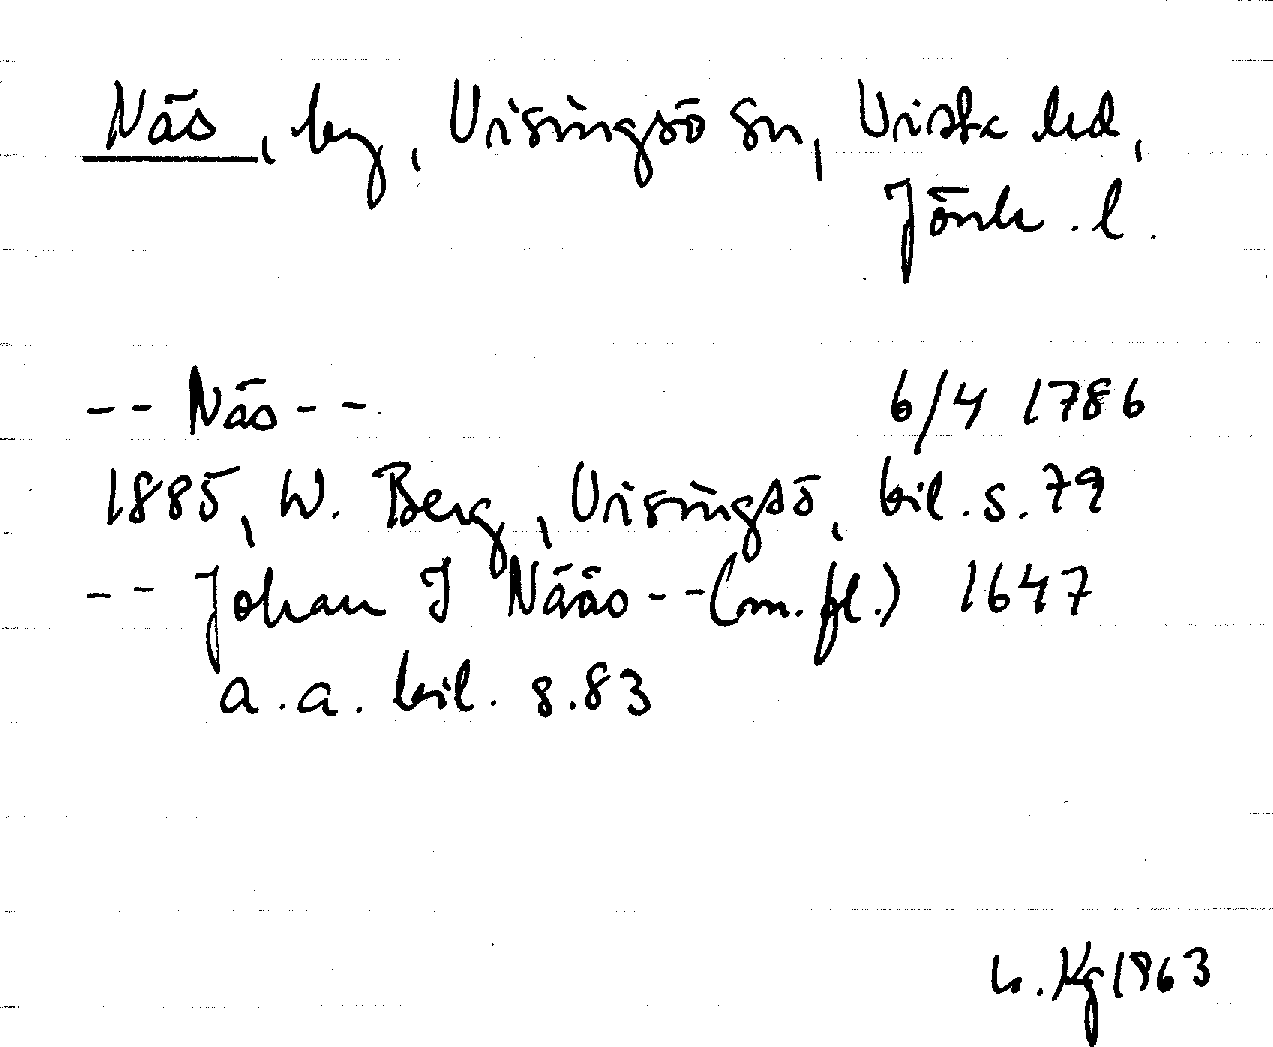 Näs, by, Visingsö sn, Vista hd,
Jönk. l.
-- Näs -- 6/4 1786
1885, W. Berg, Visingsö, bil. s. 79
-- Johan J Nääs -- (m. fl.) 1647
a. a. bil. s. 83
Kg 1963